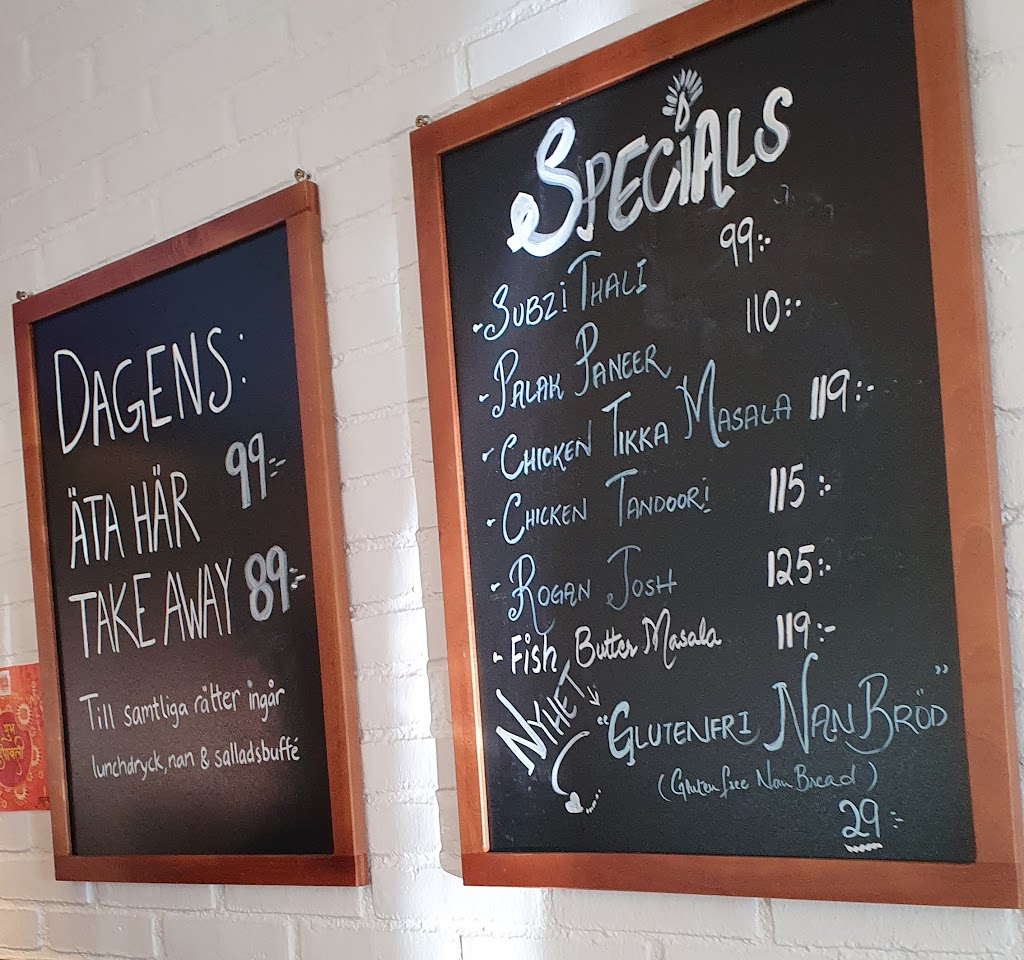 DAGENS:
ÄTA HÄR 99:-
TAKE AWAY 89:-
Till samtliga rätter ingår
lunchdryck, nan & salladsbuffé
SPECiALS
- SUBZi THALI 99:-
- PALAK PANEER 110:-
- CHICKEN TIKKA MASALA 119:-
- CHICKEN TANDOORi 115:-
- ROGAN JOSH 125:-
- Fish Butter Masala 119:-
NYHET
"GLUTENFRI NAN BRÖD"
(Gluten free Nan Bread)
29:-